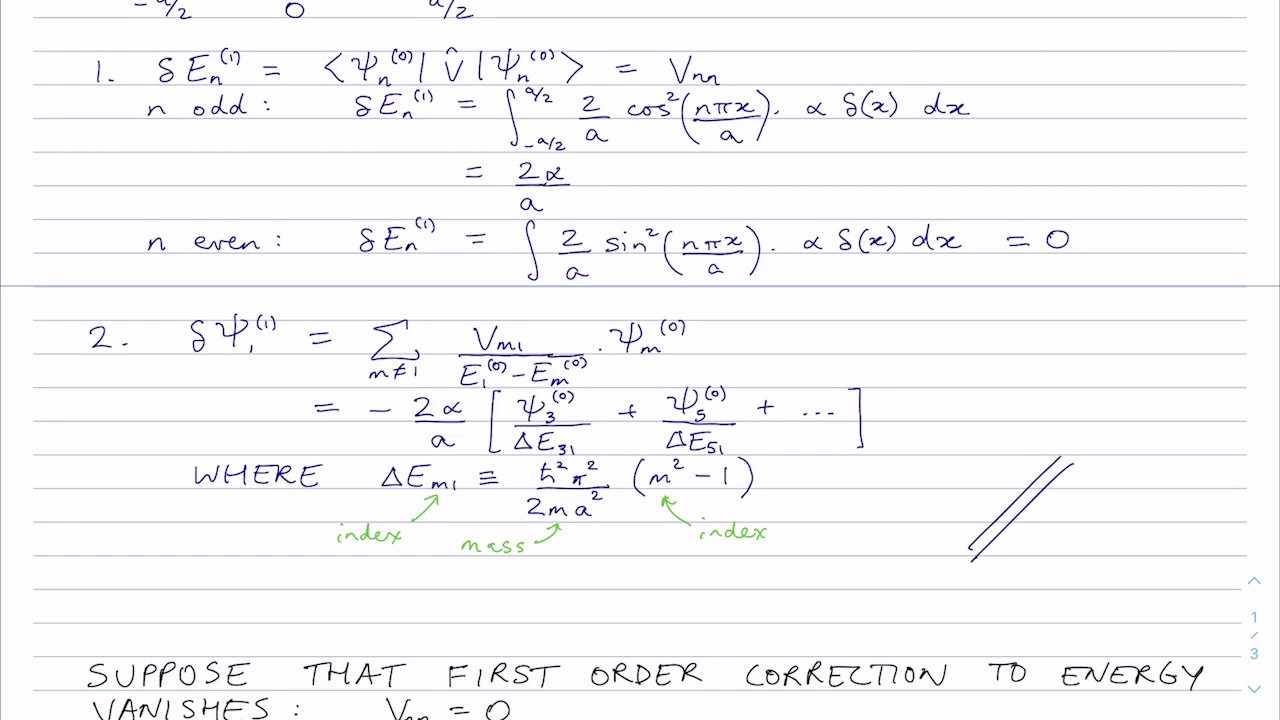 -a/2 0 a/2
1. δEₙ⁽¹⁾ = ⟨ψₙ⁽⁰⁾| V̂ |ψₙ⁽⁰⁾⟩ = Vₙₙ
n odd : δEₙ⁽¹⁾ = ∫_{-a/2}^{a/2} 2/a cos²(nπx/a). α δ(x) dx
= 2α/a
n even : δEₙ⁽¹⁾ = ∫ 2/a sin²(nπx/a). α δ(x) dx = 0
2. δψ₁⁽¹⁾ = Σ_{m≠1} V_{m1}/(E₁⁽⁰⁾ - Eₘ⁽⁰⁾) . ψₘ⁽⁰⁾
= - 2α/a [ψ₃⁽⁰⁾/ΔE₃₁ + ψ₅⁽⁰⁾/ΔE₅₁ + ...]
WHERE ΔE_{m1} ≡ ħ²π²/2ma² (m² - 1)
index mass index
1
/
3
SUPPOSE THAT FIRST ORDER CORRECTION TO ENERGY
VANISHES : Vₙₙ = 0